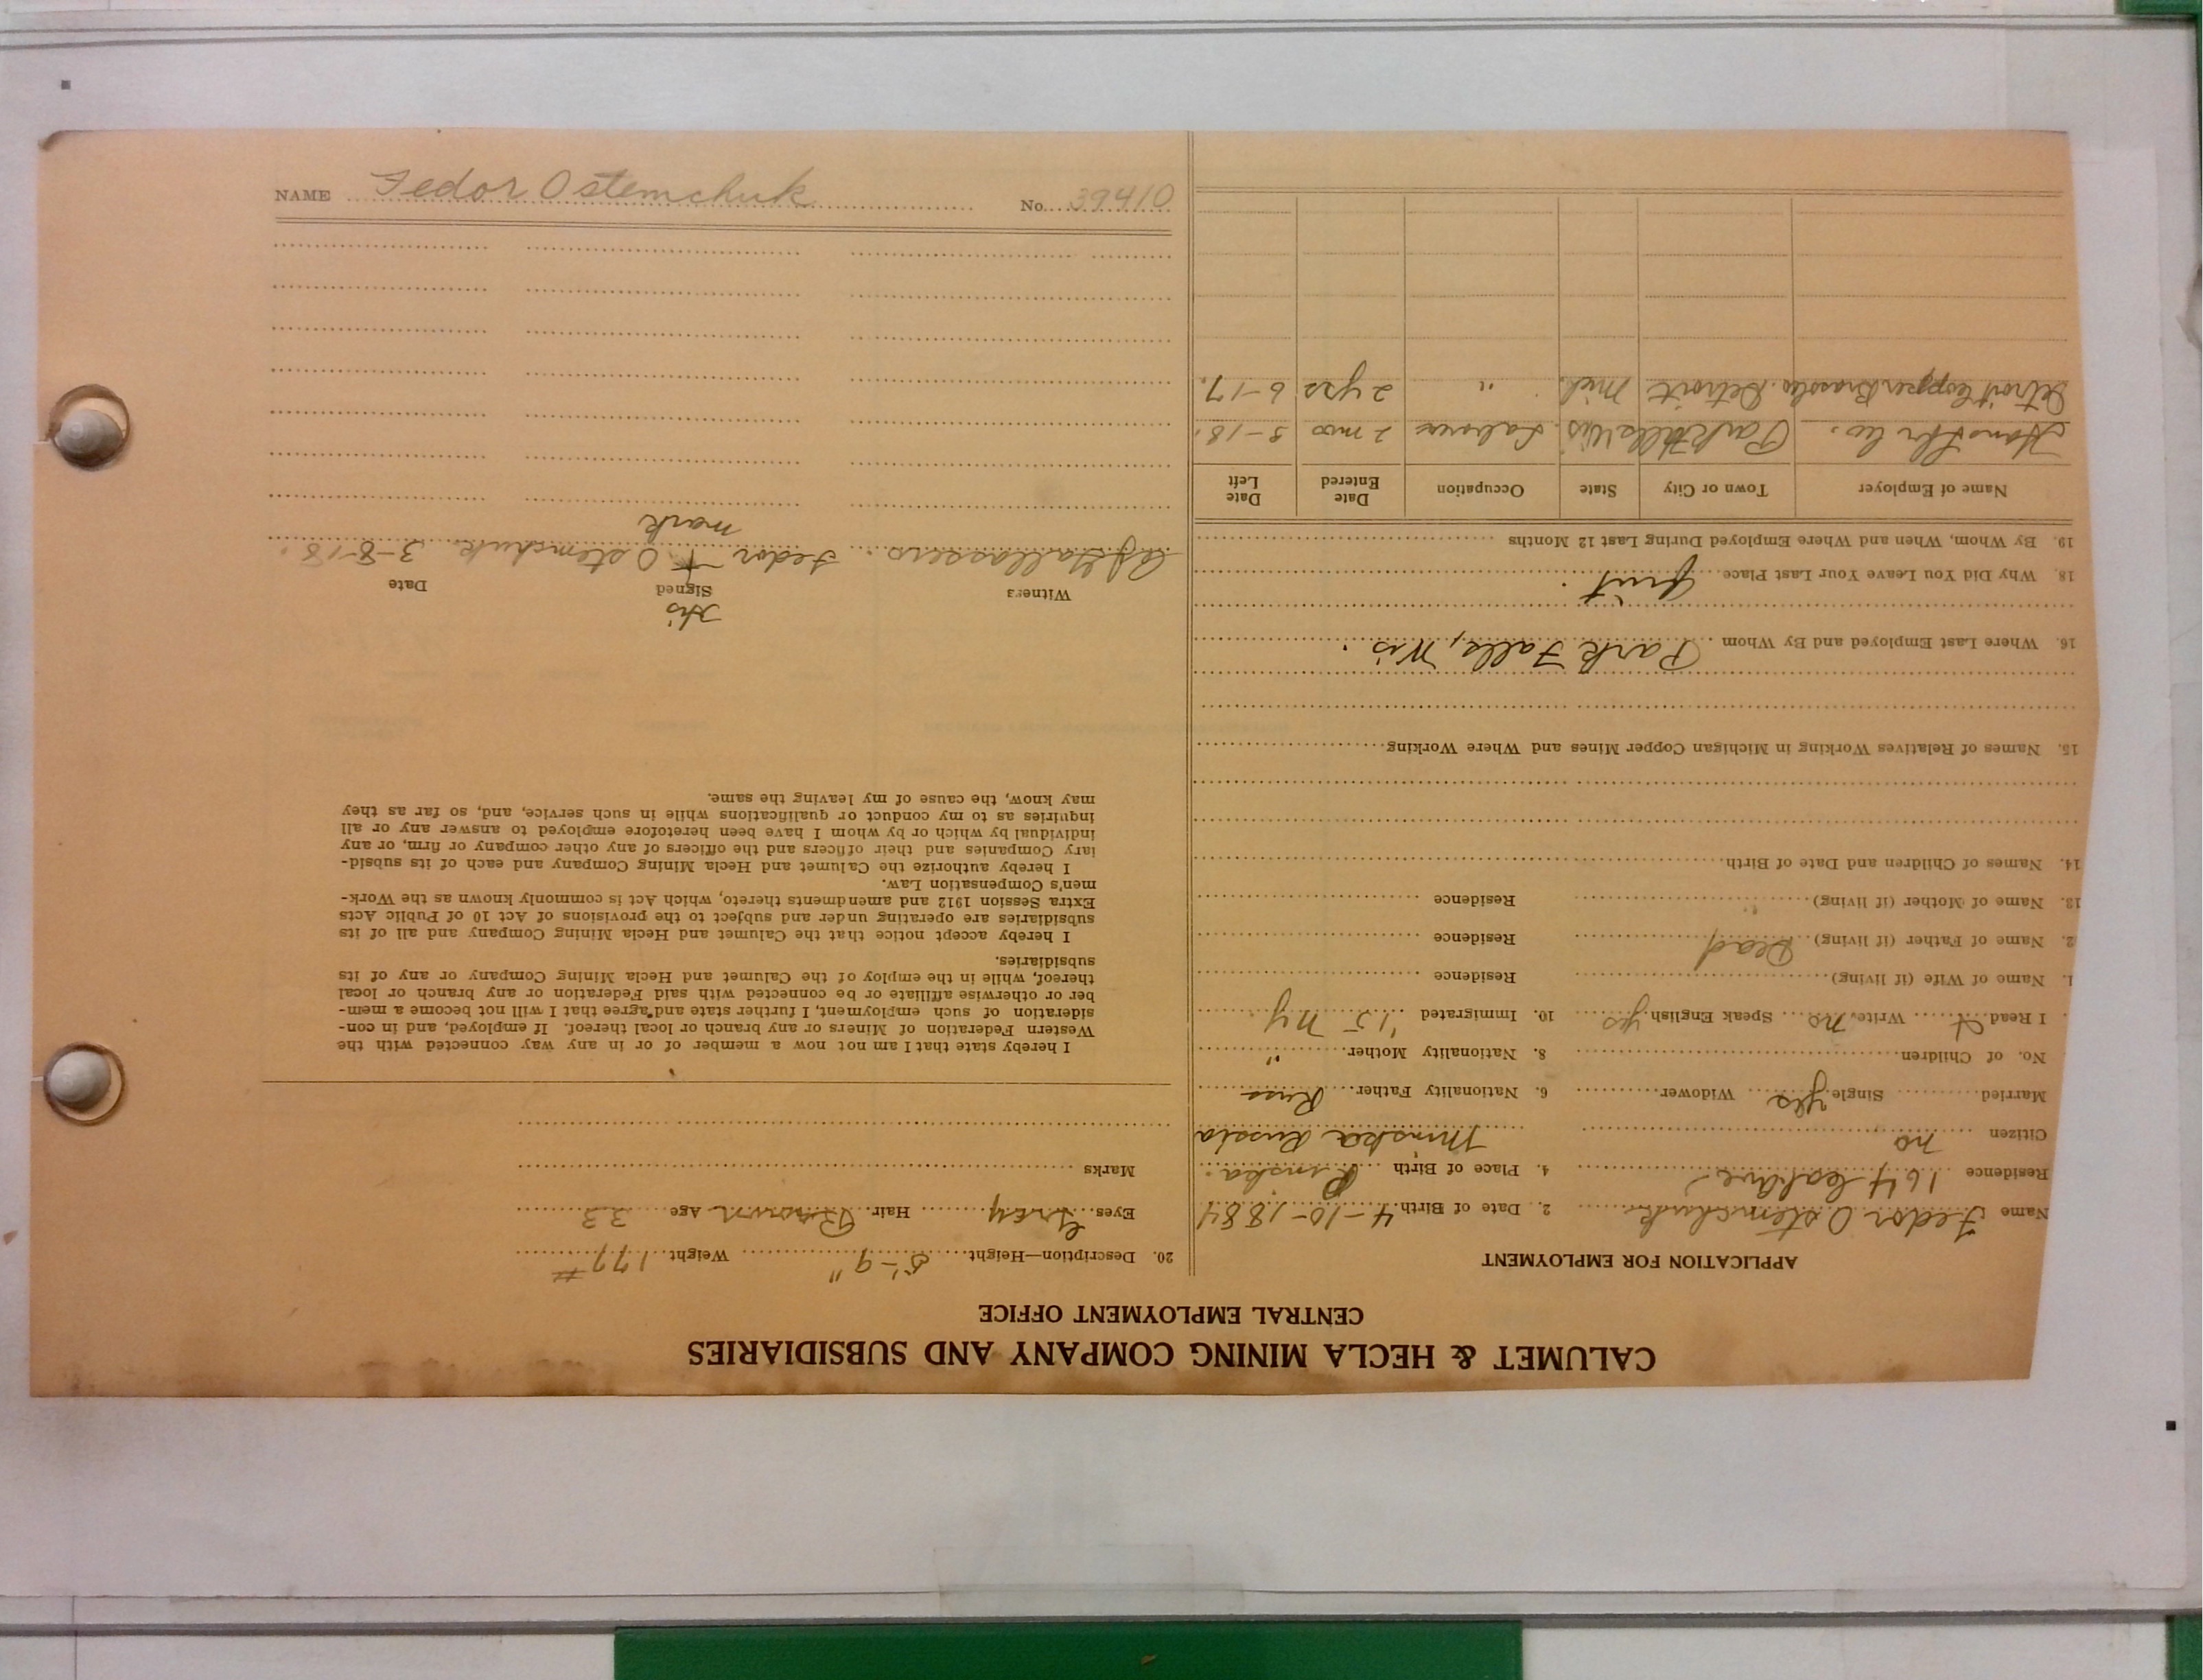 CALUMET & HECLA MINING COMPANY AND SUBSIDIARIES
CENTRAL EMPLOYMENT OFFICE
APPLICATION FOR EMPLOYMENT
Name Fedor Ostemchuk 2. Date of Birth 4-10-1884
Residence 164 4. Place of Birth Pinska
Citizen no Minska Russia
Married Single yes Widower 6. Nationality Father Russ
No. of Children 8. Nationality Mother "
I Read Write no Speak English yes 10. Immigrated '15 NY
1. Name of Wife (if living) Residence
2. Name of Father (if living) Dead Residence
13. Name of Mother (if living) " Residence
14. Names of Children and Date of Birth
15. Names of Relatives Working in Michigan Copper Mines and Where Working
16. Where Last Employed and By Whom Park Falls, Wis.
18. Why Did You Leave Your Last Place Quit.
19. By Whom, When and Where Employed During Last 12 Months
Name of Employer Town or City State Occupation Date Entered Date Left
Co. Park Falls Wis. Laborer 2 mos 3-18.
Detroit Copper Brass Co. Detroit Mich. " 2 yrs 6-17.
20. Description—Height 5'-9" Weight 177#
Eyes Grey Hair Brown Age 33
Marks
I hereby state that I am not now a member of or in any way connected with the
Western Federation of Miners or any branch or local thereof. If employed, and in con-
sideration of such employment, I further state and agree that I will not become a mem-
ber or otherwise affiliate or be connected with said Federation or any branch or local
thereof, while in the employ of the Calumet and Hecla Mining Company or any of its
subsidiaries.
I hereby accept notice that the Calumet and Hecla Mining Company and all of its
subsidiaries are operating under and subject to the provisions of Act 10 of Public Acts
Extra Session 1912 and amendments thereto, which Act is commonly known as the Work-
men's Compensation Law.
I hereby authorize the Calumet and Hecla Mining Company and each of its subsid-
iary Companies and their officers and the officers of any other company or firm, or any
individual by which or by whom I have been heretofore employed to answer any or all
inquiries as to my conduct or qualifications while in such service, and, so far as they
may know, the cause of my leaving the same.
His
Witness Signed Date
Fedor + Ostemchuk 3-8-18.
mark
NAME Fedor Ostemchuk No. 39410